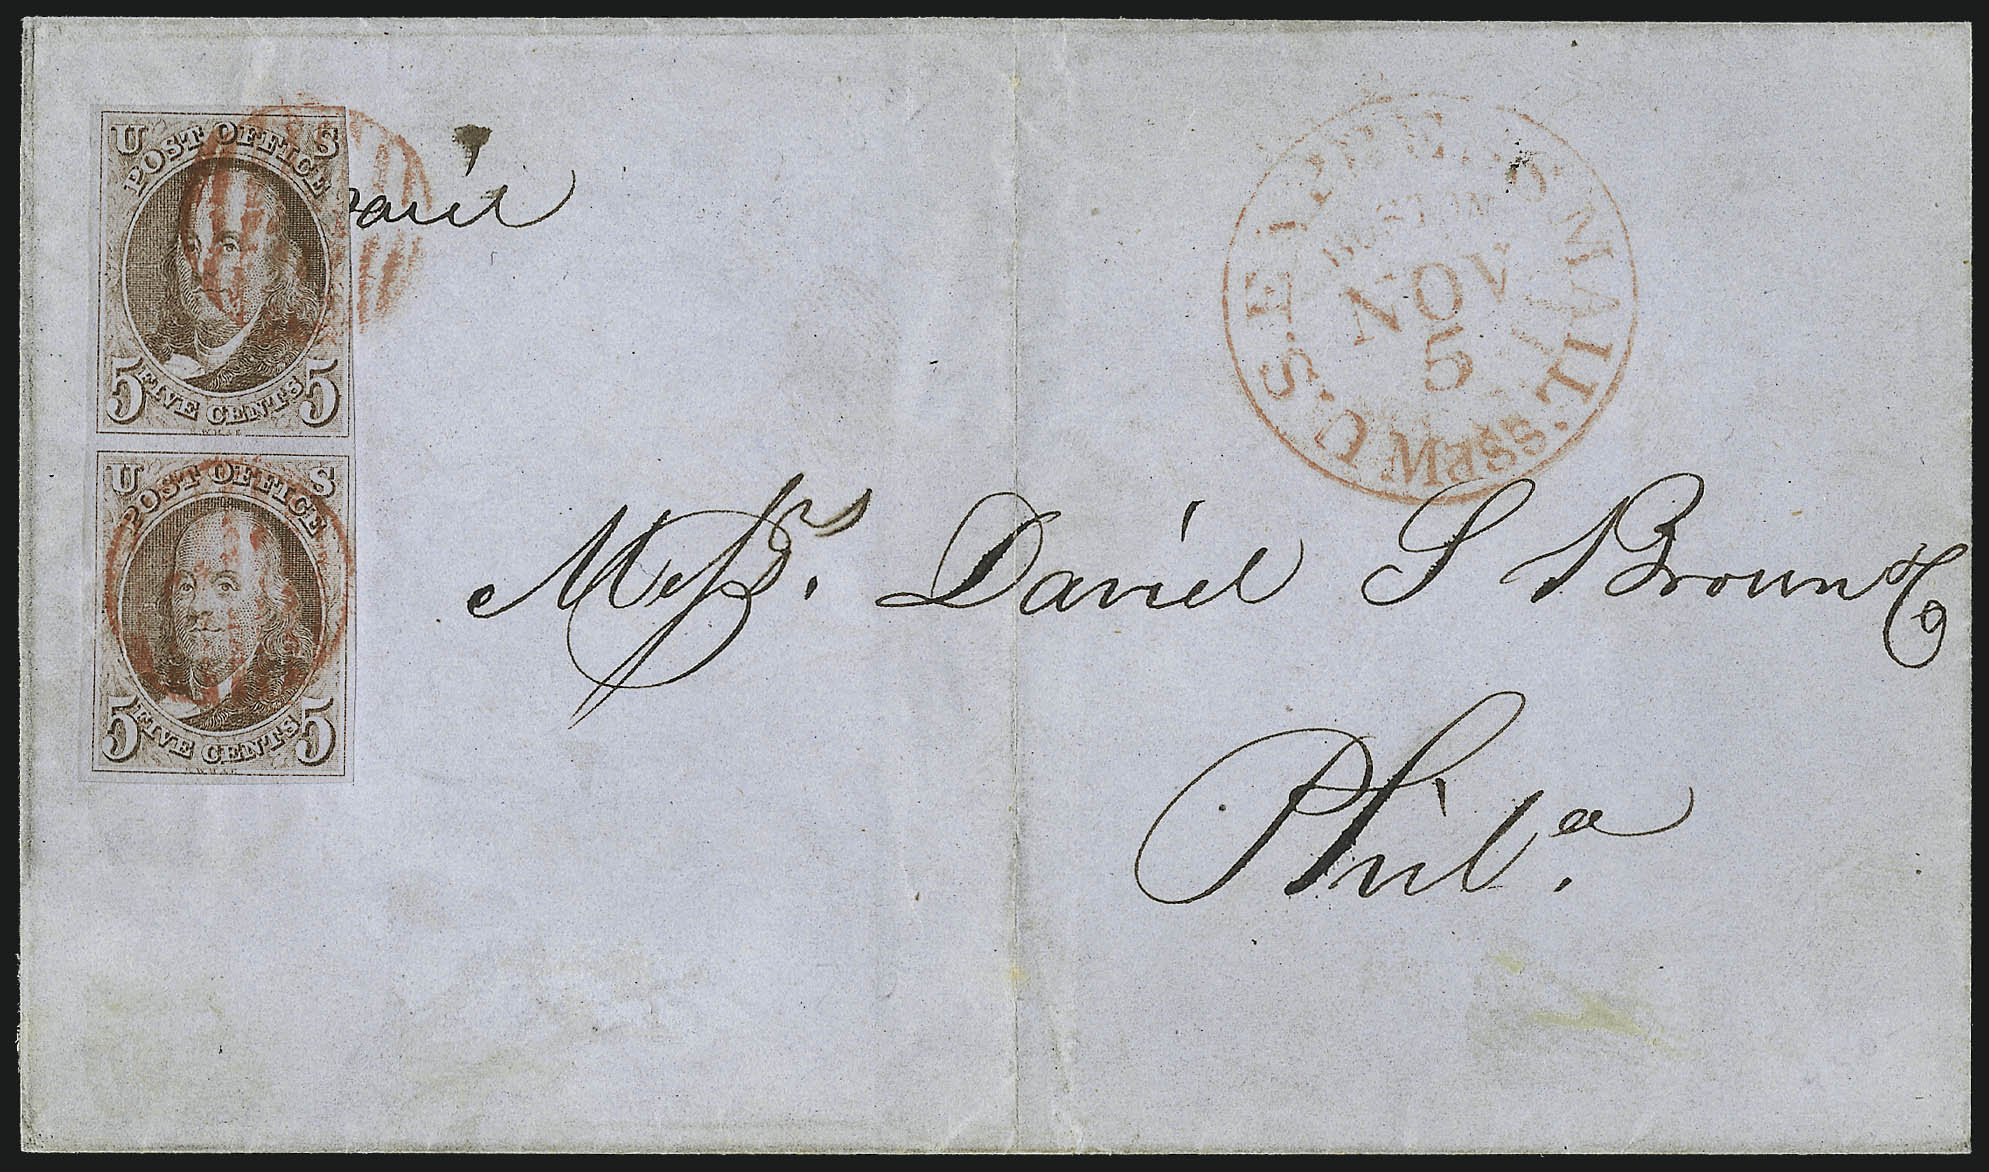 U S
POST OFFICE
5 FIVE CENTS 5
U S
POST OFFICE
5 FIVE CENTS 5
paid
U.S. EXPRESS MAIL
BOSTON
NOV
5
Mass.
Messrs. Daniel S Brown & Co
Phila.